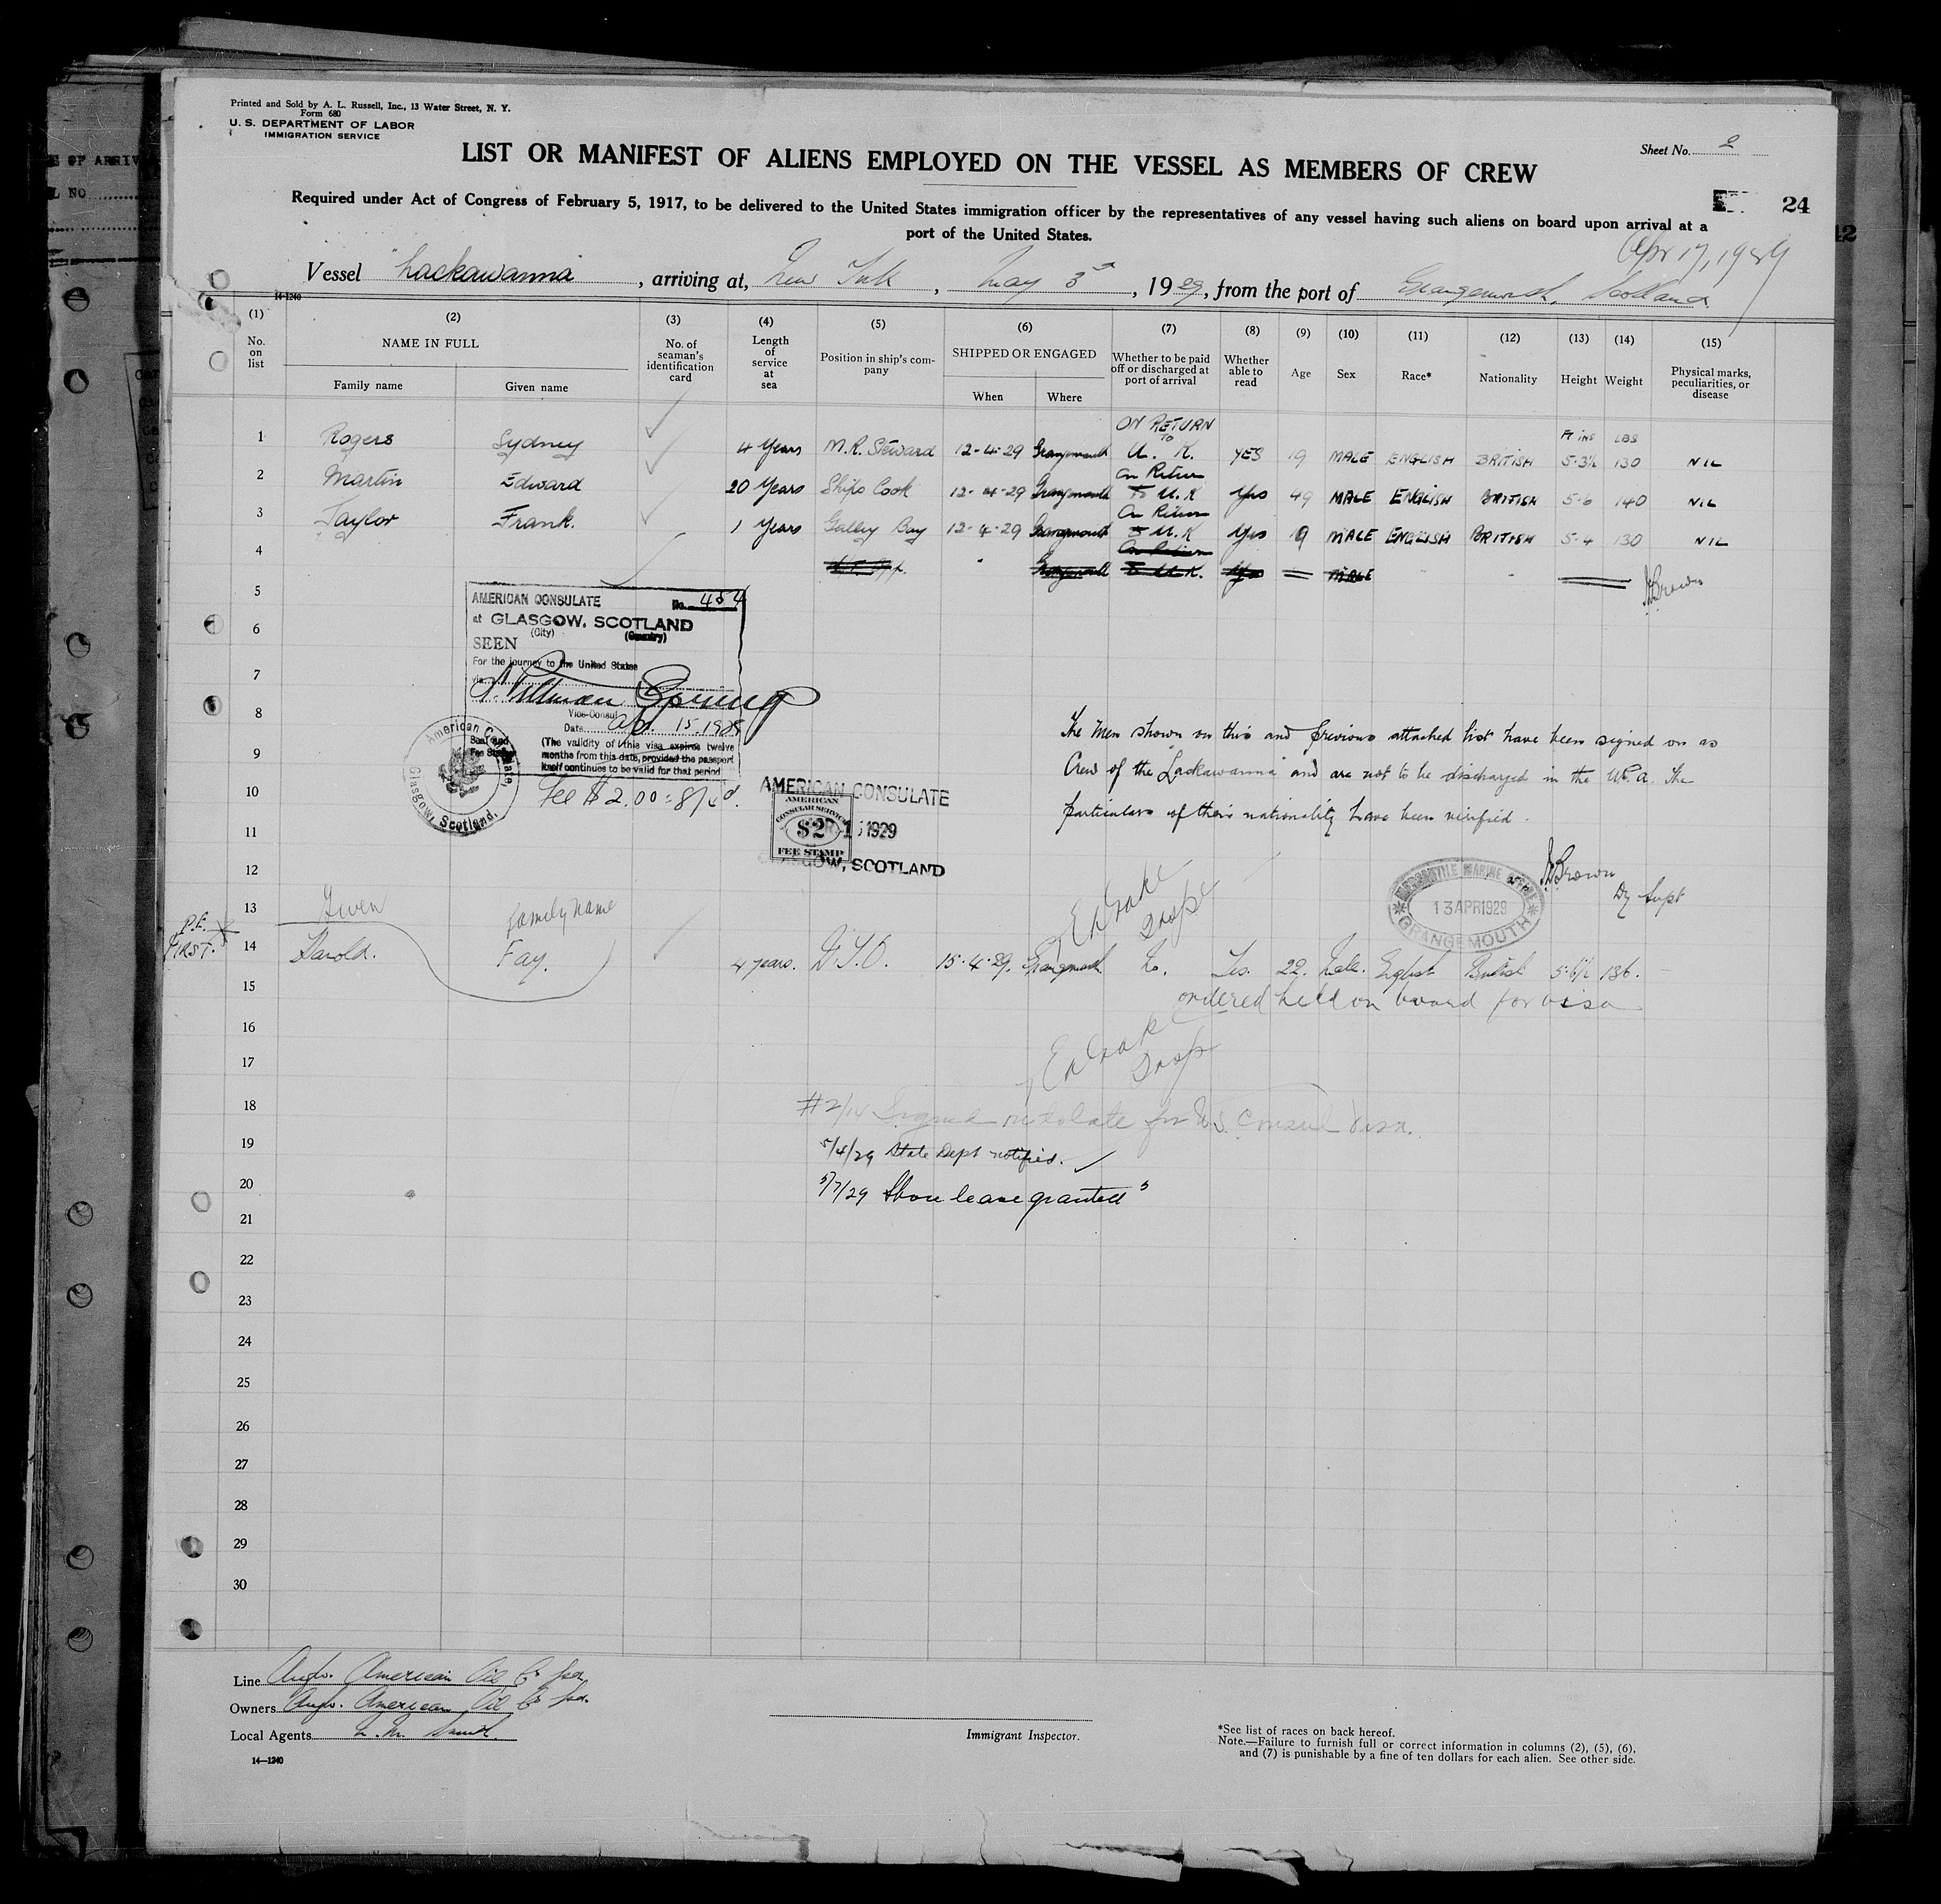 Printed and Sold by A. L. Russell, Inc., 13 Water Street, N. Y.
Form 680
U. S. DEPARTMENT OF LABOR
IMMIGRATION SERVICE
Sheet No. 2
LIST OR MANIFEST OF ALIENS EMPLOYED ON THE VESSEL AS MEMBERS OF CREW
24
Required under Act of Congress of February 5, 1917, to be delivered to the United States immigration officer by the representatives of any vessel having such aliens on board upon arrival at a
port of the United States.
Apr 17, 1929
Vessel "Lackawanna", arriving at, New York, May 3rd, 1929, from the port of Grangemouth, Scotland.
14-1240
(1) (2) (3) (4) (5) (6) (7) (8) (9) (10) (11) (12) (13) (14) (15)
No. on list NAME IN FULL Family name Given name No. of seaman's identification card Length of service at sea Position in ship's company SHIPPED OR ENGAGED When Where Whether to be paid off or discharged at port of arrival Whether able to read Age Sex Race* Nationality Height Weight Physical marks, peculiarities, or disease
ON RETURN Ft ins LBS
1 Rogers Sydney 4 Years M.R. Steward 12-4-29 Grangemouth TO U. K. YES 19 MALE ENGLISH BRITISH 5·3½ 130 NIL
On Return
2 Martin Edward 20 Years Ships Cook 12-4-29 Grangemouth To U.K Yes 49 MALE ENGLISH BRITISH 5·6 140 NIL
On Return
3 Taylor Frank. 1 Years Galley Boy 12-4-29 Grangemouth To U.K Yes 19 MALE ENGLISH BRITISH 5·4 130 NIL
On Return
4 Grangemouth To U.K. Yes MALE
Brown
5
6
7
8
9
10
11
12
AMERICAN CONSULATE No. 484
at GLASGOW, SCOTLAND
(City) (Country)
SEEN
For the journey to the United States
via
Vice-Consul
Date Apr. 15. 1929
(The validity of this visa expires twelve
months from this date, provided the passport
itself continues to be valid for that period
Seal and
Fee Stamp
American Consulate
Glasgow, Scotland.
Fee $2.00 = 8/4d.
AMERICAN CONSULATE
AMERICAN
CONSULAR SERVICE
$2
FEE STAMP
1929
GLASGOW, SCOTLAND
The men shown on this and previous attached list have been signed on as
Crew of the "Lackawanna" and are not to be discharged in the U.S.A. The
particulars of their nationality have been verified.
Brown
Dy Supt
MERCANTILE MARINE OFFICE
13 APR 1929
GRANGEMOUTH
13 Given Family name
P.E. FIRST.
14 Harold. Fay. 4 years. 15·4·29. Grangemouth No. Yes. 22. Male. English British 5·6½ 136.
15 ordered held on board for visa
16
En Drake
Insp
17
18 #2/14 Signed on too late for U.S. Consul visa.
19 5/4/29 State Dept notified.
20 5/7/29 Shore leave granted
21
22
23
24
25
26
27
28
29
30
Line Anglo. American Oil Co Ltd.
Owners Anglo. American Oil Co Ltd.
Local Agents
14—1240
Immigrant Inspector.
*See list of races on back hereof.
Note.—Failure to furnish full or correct information in columns (2), (5), (6),
and (7) is punishable by a fine of ten dollars for each alien. See other side.